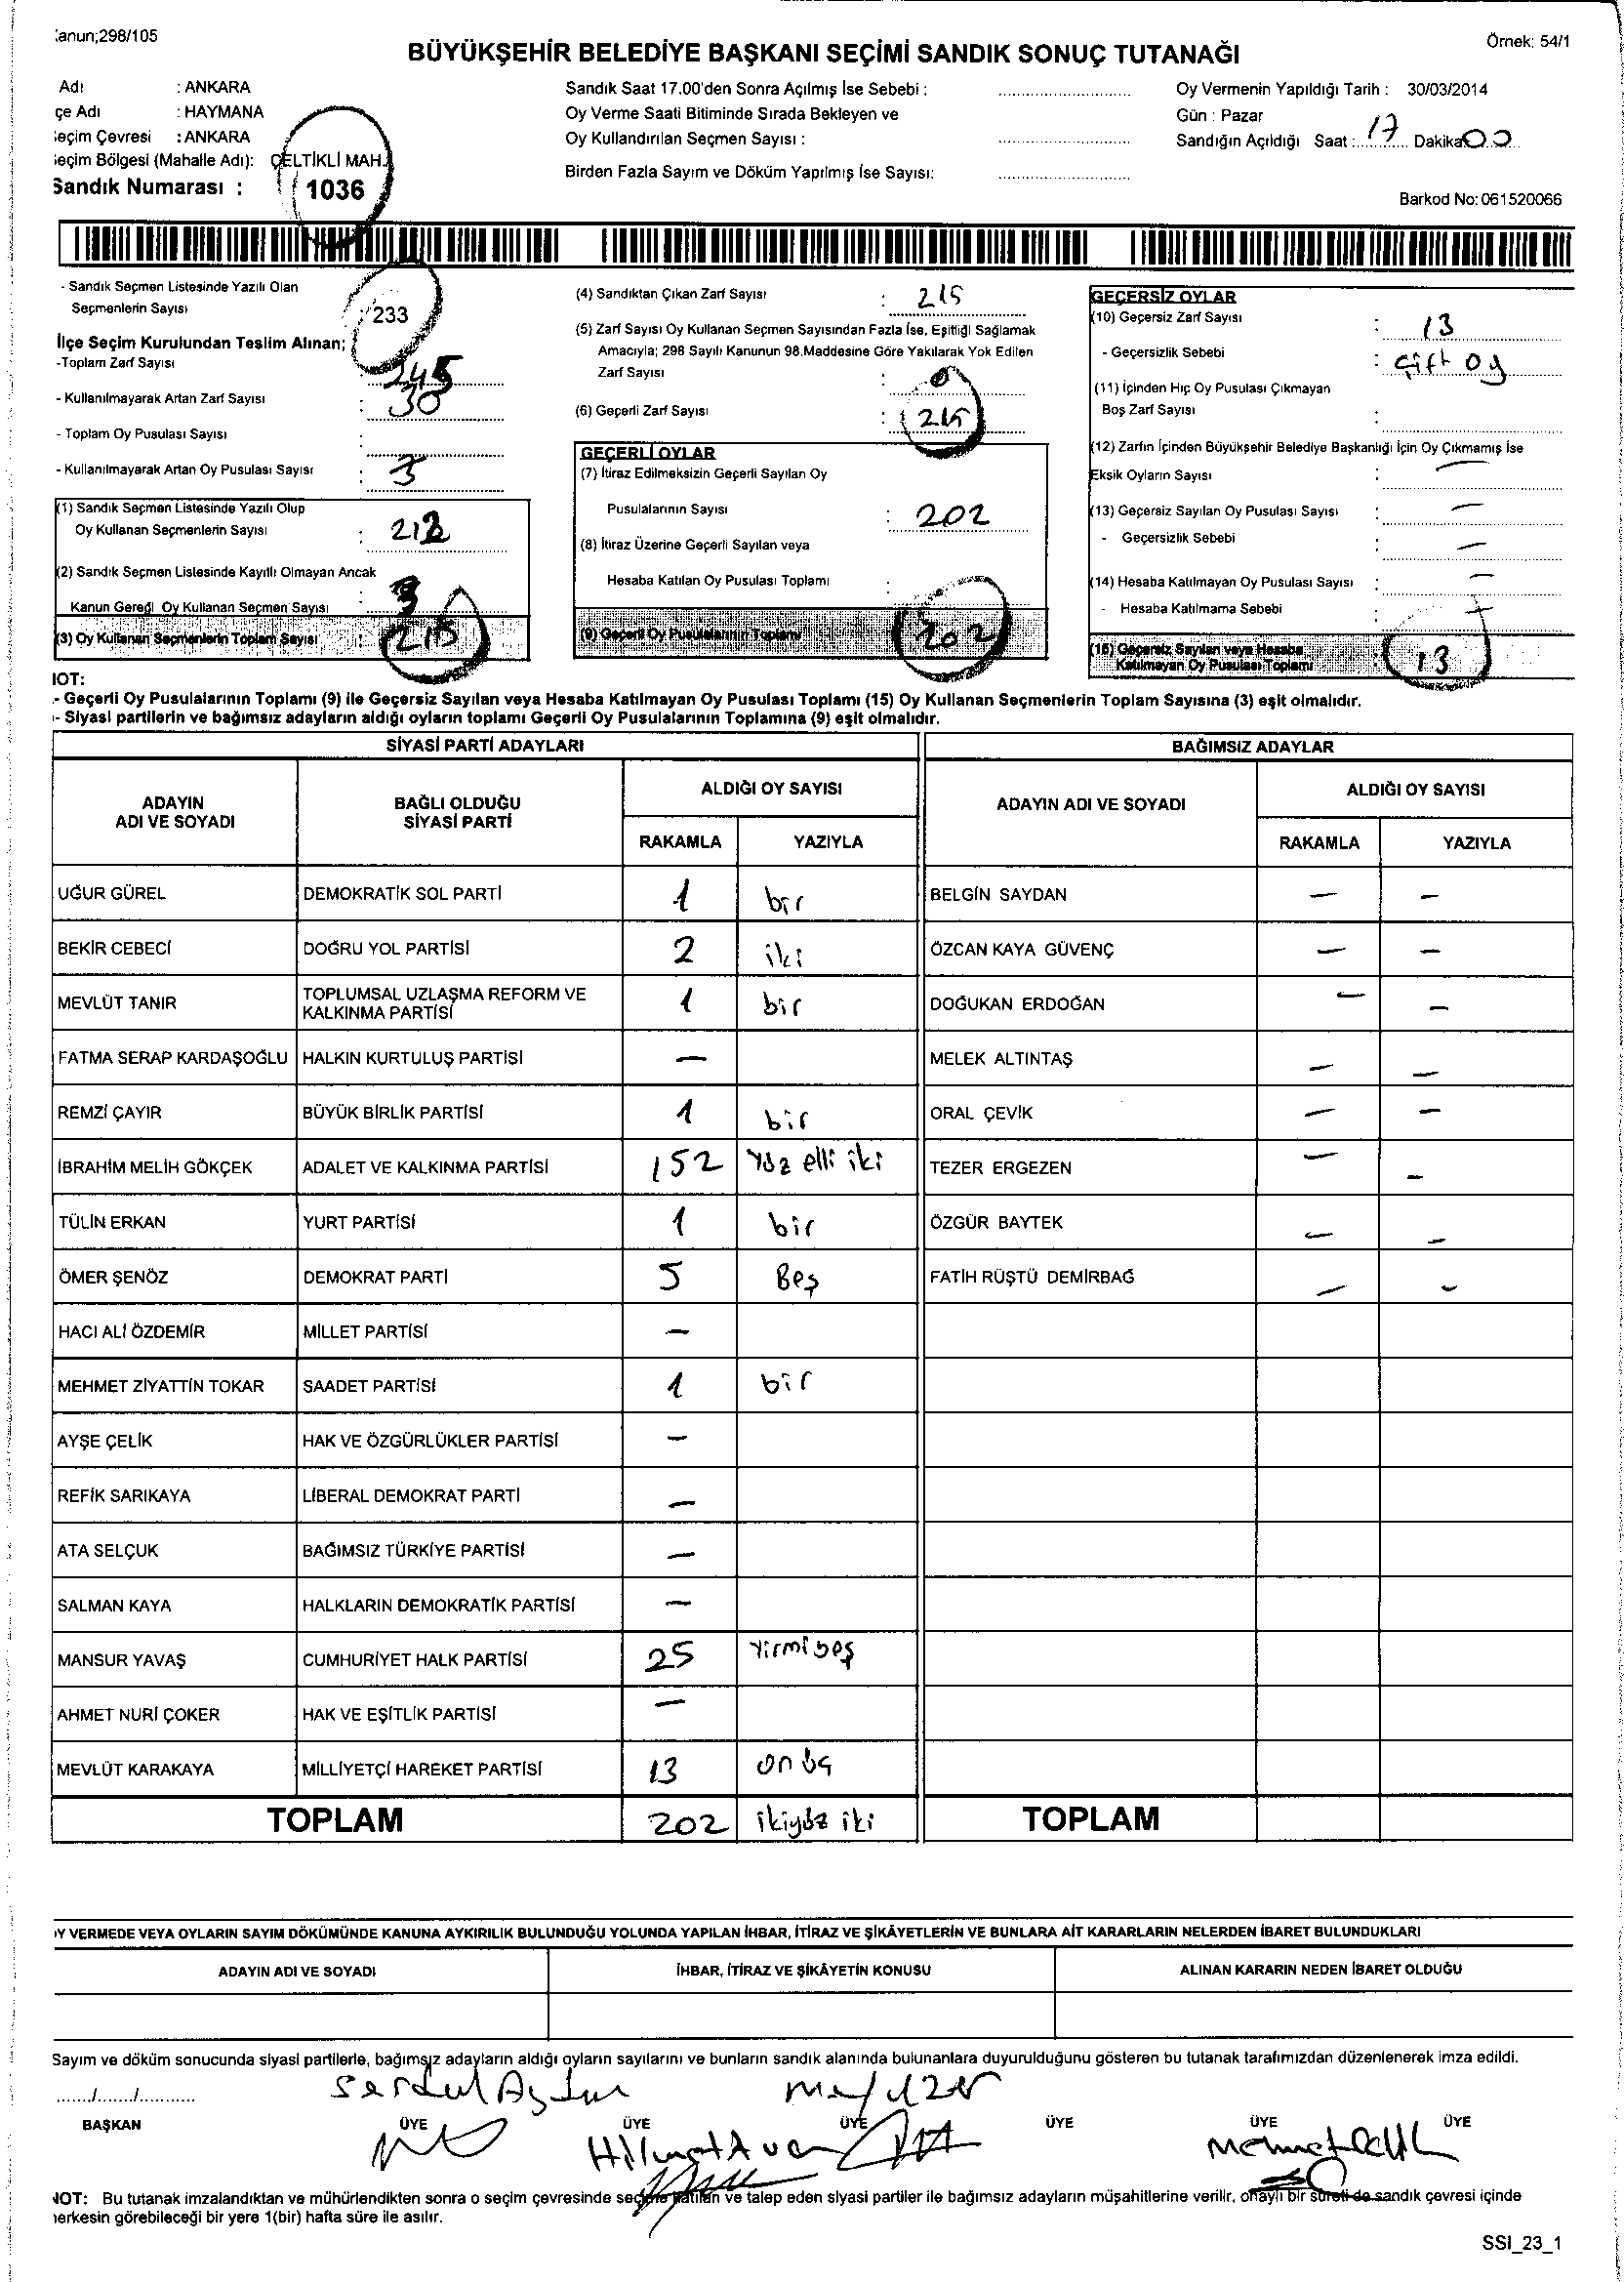 Kanun;298/105
Örnek: 54/1
BÜYÜKŞEHİR BELEDİYE BAŞKANI SEÇİMİ SANDIK SONUÇ TUTANAĞI
Adı : ANKARA
çe Adı : HAYMANA
eçim Çevresi : ANKARA
eçim Bölgesi (Mahalle Adı): ÇELTİKLİ MAH.
Sandık Numarası : 1036
Sandık Saat 17.00'den Sonra Açılmış İse Sebebi :
Oy Verme Saati Bitiminde Sırada Bekleyen ve
Oy Kullandırılan Seçmen Sayısı :
Birden Fazla Sayım ve Döküm Yapılmış İse Sayısı:
Oy Vermenin Yapıldığı Tarih : 30/03/2014
Gün : Pazar
Sandığın Açıldığı Saat : 17 Dakika 00
Barkod No: 061520066
- Sandık Seçmen Listesinde Yazılı Olan
Seçmenlerin Sayısı 233
İlçe Seçim Kurulundan Teslim Alınan;
-Toplam Zarf Sayısı : 245
- Kullanılmayarak Artan Zarf Sayısı : 30
- Toplam Oy Pusulası Sayısı :
- Kullanılmayarak Artan Oy Pusulası Sayısı :
(1) Sandık Seçmen Listesinde Yazılı Olup
Oy Kullanan Seçmenlerin Sayısı : 212
(2) Sandık Seçmen Listesinde Kayıtlı Olmayan Ancak
Kanun Gereği Oy Kullanan Seçmen Sayısı : 3
(3) Oy Kullanan Seçmenlerin Toplam Sayısı : 215
(4) Sandıktan Çıkan Zarf Sayısı : 215
(5) Zarf Sayısı Oy Kullanan Seçmen Sayısından Fazla İse, Eşitliği Sağlamak
Amacıyla; 298 Sayılı Kanunun 98.Maddesine Göre Yakılarak Yok Edilen
Zarf Sayısı : 0
(6) Geçerli Zarf Sayısı : 215
GEÇERLİ OYLAR
(7) İtiraz Edilmeksizin Geçerli Sayılan Oy
Pusulalarının Sayısı : 202
(8) İtiraz Üzerine Geçerli Sayılan veya
Hesaba Katılan Oy Pusulası Toplamı :
(9) Geçerli Oy Pusulalarının Toplamı 202
GEÇERSİZ OYLAR
(10) Geçersiz Zarf Sayısı : 13
- Geçersizlik Sebebi : Çift oy
(11) İçinden Hiç Oy Pusulası Çıkmayan
Boş Zarf Sayısı :
(12) Zarfın İçinden Büyükşehir Belediye Başkanlığı İçin Oy Çıkmamış İse
Eksik Oyların Sayısı : —
(13) Geçersiz Sayılan Oy Pusulası Sayısı : —
- Geçersizlik Sebebi : —
(14) Hesaba Katılmayan Oy Pusulası Sayısı : —
- Hesaba Katılmama Sebebi :
(15) Geçersiz Sayılan veya Hesaba
Katılmayan Oy Pusulası Toplamı : 13
NOT:
- Geçerli Oy Pusulalarının Toplamı (9) ile Geçersiz Sayılan veya Hesaba Katılmayan Oy Pusulası Toplamı (15) Oy Kullanan Seçmenlerin Toplam Sayısına (3) eşit olmalıdır.
- Siyasi partilerin ve bağımsız adayların aldığı oyların toplamı Geçerli Oy Pusulalarının Toplamına (9) eşit olmalıdır.
SİYASİ PARTİ ADAYLARI BAĞIMSIZ ADAYLAR
ADAYIN ADI VE SOYADI BAĞLI OLDUĞU SİYASİ PARTİ ALDIĞI OY SAYISI ADAYIN ADI VE SOYADI ALDIĞI OY SAYISI
RAKAMLA YAZIYLA RAKAMLA YAZIYLA
UĞUR GÜREL DEMOKRATİK SOL PARTİ 1 bir BELGİN SAYDAN — —
BEKİR CEBECİ DOĞRU YOL PARTİSİ 2 iki ÖZCAN KAYA GÜVENÇ — —
MEVLÜT TANIR TOPLUMSAL UZLAŞMA REFORM VE KALKINMA PARTİSİ 1 bir DOĞUKAN ERDOĞAN — —
FATMA SERAP KARDAŞOĞLU HALKIN KURTULUŞ PARTİSİ — MELEK ALTINTAŞ — —
REMZİ ÇAYIR BÜYÜK BİRLİK PARTİSİ 1 bir ORAL ÇEVİK — —
İBRAHİM MELİH GÖKÇEK ADALET VE KALKINMA PARTİSİ 152 Yüz elli iki TEZER ERGEZEN — —
TÜLİN ERKAN YURT PARTİSİ 1 bir ÖZGÜR BAYTEK — —
ÖMER ŞENÖZ DEMOKRAT PARTİ 5 Beş FATİH RÜŞTÜ DEMİRBAĞ — —
HACI ALİ ÖZDEMİR MİLLET PARTİSİ —
MEHMET ZİYATTİN TOKAR SAADET PARTİSİ 1 bir
AYŞE ÇELİK HAK VE ÖZGÜRLÜKLER PARTİSİ —
REFİK SARIKAYA LİBERAL DEMOKRAT PARTİ —
ATA SELÇUK BAĞIMSIZ TÜRKİYE PARTİSİ —
SALMAN KAYA HALKLARIN DEMOKRATİK PARTİSİ —
MANSUR YAVAŞ CUMHURİYET HALK PARTİSİ 25 Yirmi beş
AHMET NURİ ÇOKER HAK VE EŞİTLİK PARTİSİ —
MEVLÜT KARAKAYA MİLLİYETÇİ HAREKET PARTİSİ 13 on üç
TOPLAM 202 ikiyüz iki TOPLAM
OY VERMEDE VEYA OYLARIN SAYIM DÖKÜMÜNDE KANUNA AYKIRILIK BULUNDUĞU YOLUNDA YAPILAN İHBAR, İTİRAZ VE ŞİKÂYETLERİN VE BUNLARA AİT KARARLARIN NELERDEN İBARET BULUNDUKLARI
ADAYIN ADI VE SOYADI İHBAR, İTİRAZ VE ŞİKÂYETİN KONUSU ALINAN KARARIN NEDEN İBARET OLDUĞU
Sayım ve döküm sonucunda siyasi partilerle, bağımsız adayların aldığı oyların sayılarını ve bunların sandık alanında bulunanlara duyurulduğunu gösteren bu tutanak tarafımızdan düzenlenerek imza edildi.
....../....../............
BAŞKAN ÜYE ÜYE ÜYE ÜYE ÜYE ÜYE
NOT: Bu tutanak imzalandıktan ve mühürlendikten sonra o seçim çevresinde seçime katılan ve talep eden siyasi partiler ile bağımsız adayların müşahitlerine verilir, onaylı bir sureti de sandık çevresi içinde
herkesin görebileceği bir yere 1(bir) hafta süre ile asılır.
SSI_23_1